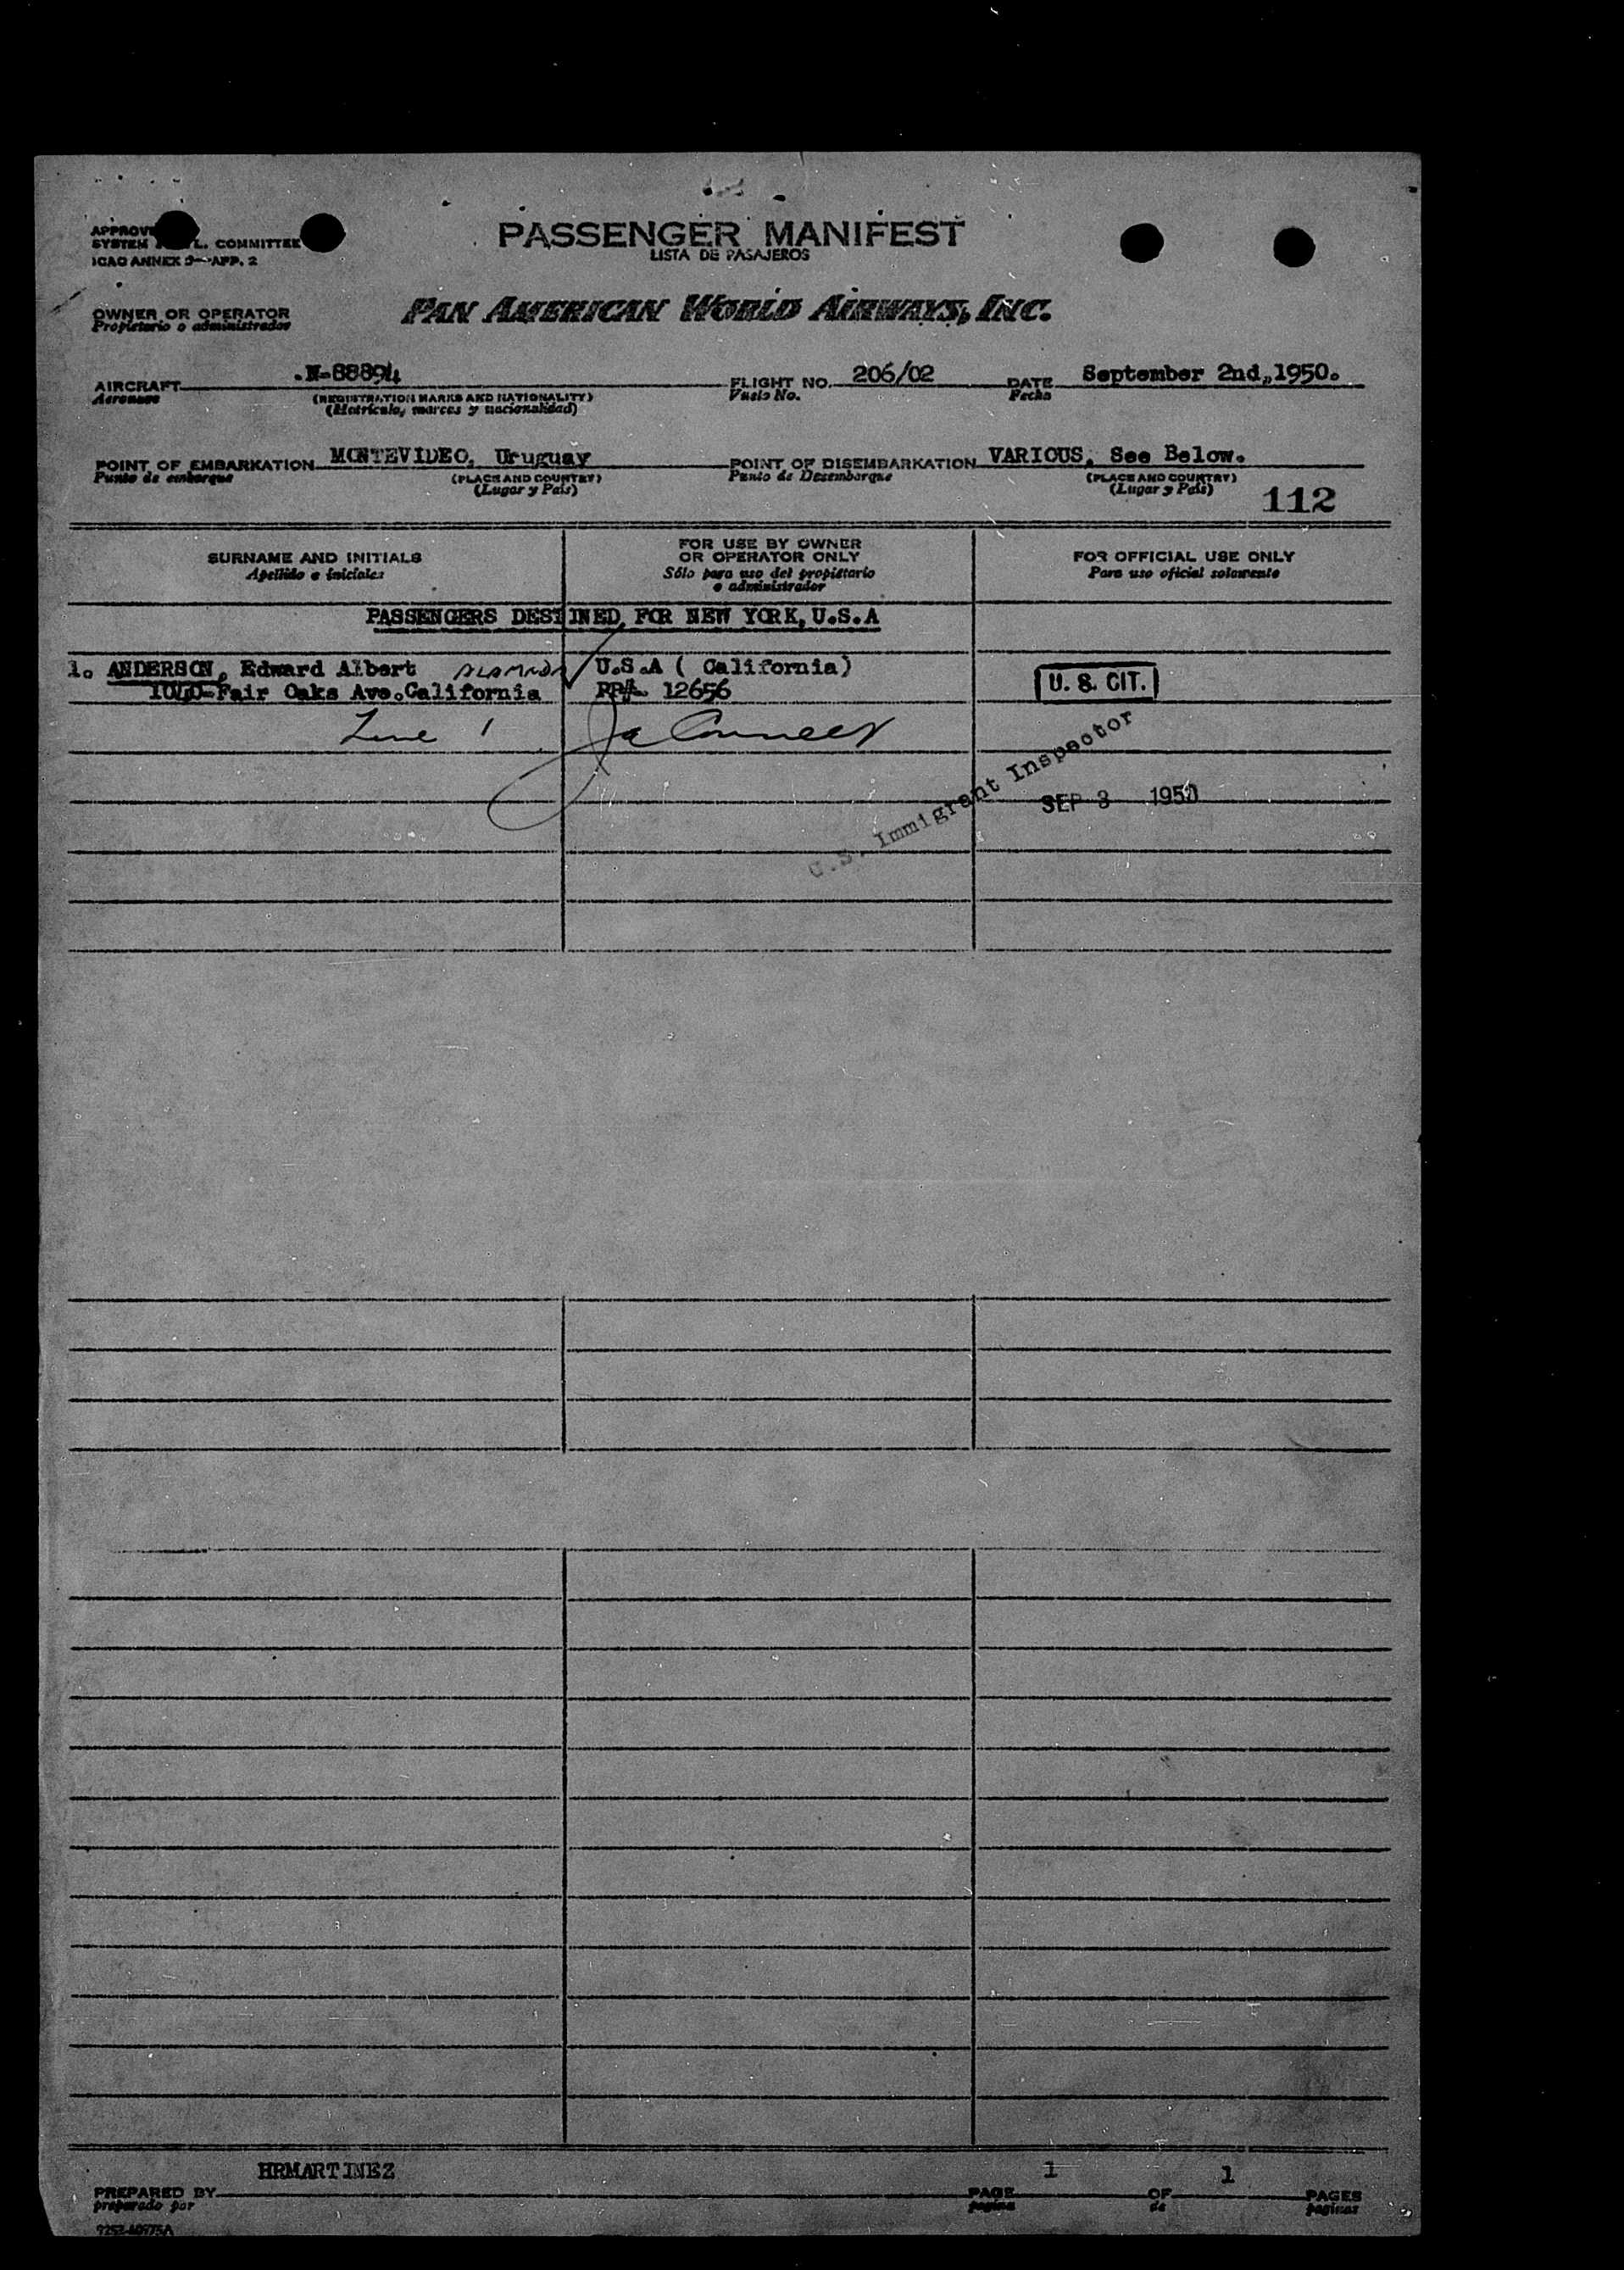 PASSENGER MANIFEST
LISTA DE PASAJEROS
SYSTEM COMMITTEE
ICAO ANNEX 9—APP. 2
OWNER OR OPERATOR
Propietario o administrador
PAN AMERICAN WORLD AIRWAYS, INC.
AIRCRAFT N-88894 FLIGHT NO. 206/02 DATE September 2nd,,1950.
Aeronave (REGISTRATION MARKS AND NATIONALITY) Vuelo No. Fecha
(Matrícula, marcas y nacionalidad)
POINT OF EMBARKATION MONTEVIDEO, Uruguay POINT OF DISEMBARKATION VARIOUS, See Below.
Punto de embarque (PLACE AND COUNTRY) Punto de Desembarque (PLACE AND COUNTRY)
(Lugar y País) (Lugar y País) 112
SURNAME AND INITIALS FOR USE BY OWNER OR OPERATOR ONLY FOR OFFICIAL USE ONLY
Apellido e iniciales Sólo para uso del propietario o administrador Para uso oficial solamente
PASSENGERS DESTINED FOR NEW YORK, U.S.A
1. ANDERSON, Edward Albert U.S.A ( California)
Fair Oaks Ave.California PP#- 12656 U. S. CIT.
Line 1
U.S. Immigrant Inspector
SEP 3 1950
HRMARTINEZ 1 1
PREPARED BY PAGE OF PAGES
preparado por pagina de paginas